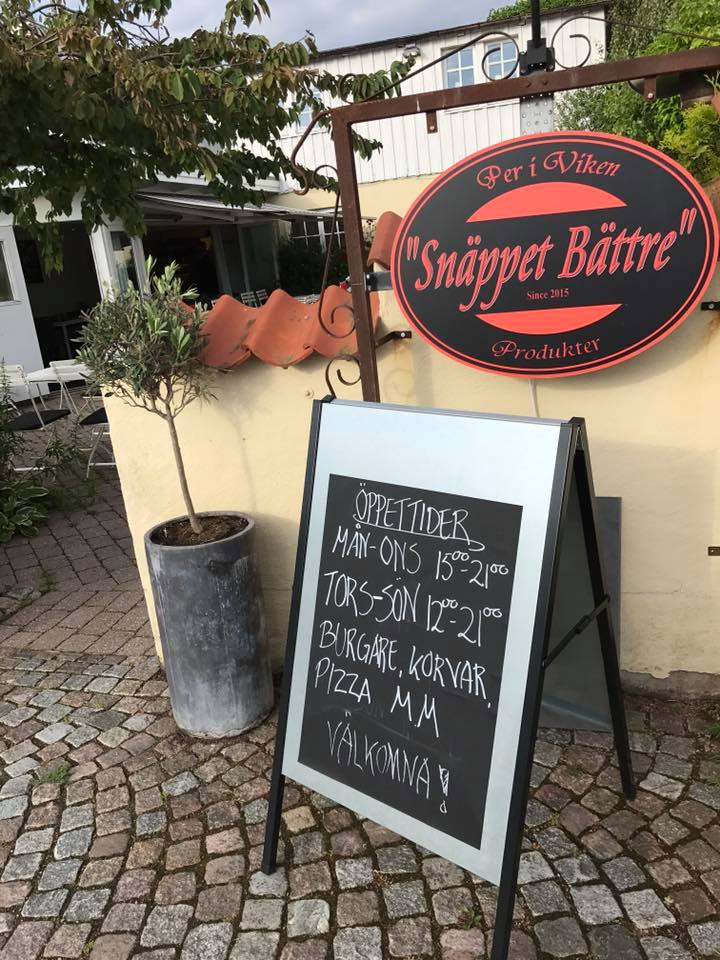 Per i Viken
"Snäppet Bättre"
Since 2015
Produkter
ÖPPETTIDER
MÅN-ONS 15⁰⁰-21⁰⁰
TORS-SÖN 12⁰⁰-21⁰⁰
BURGARE, KORVAR,
PIZZA MM
VÄLKOMNA!